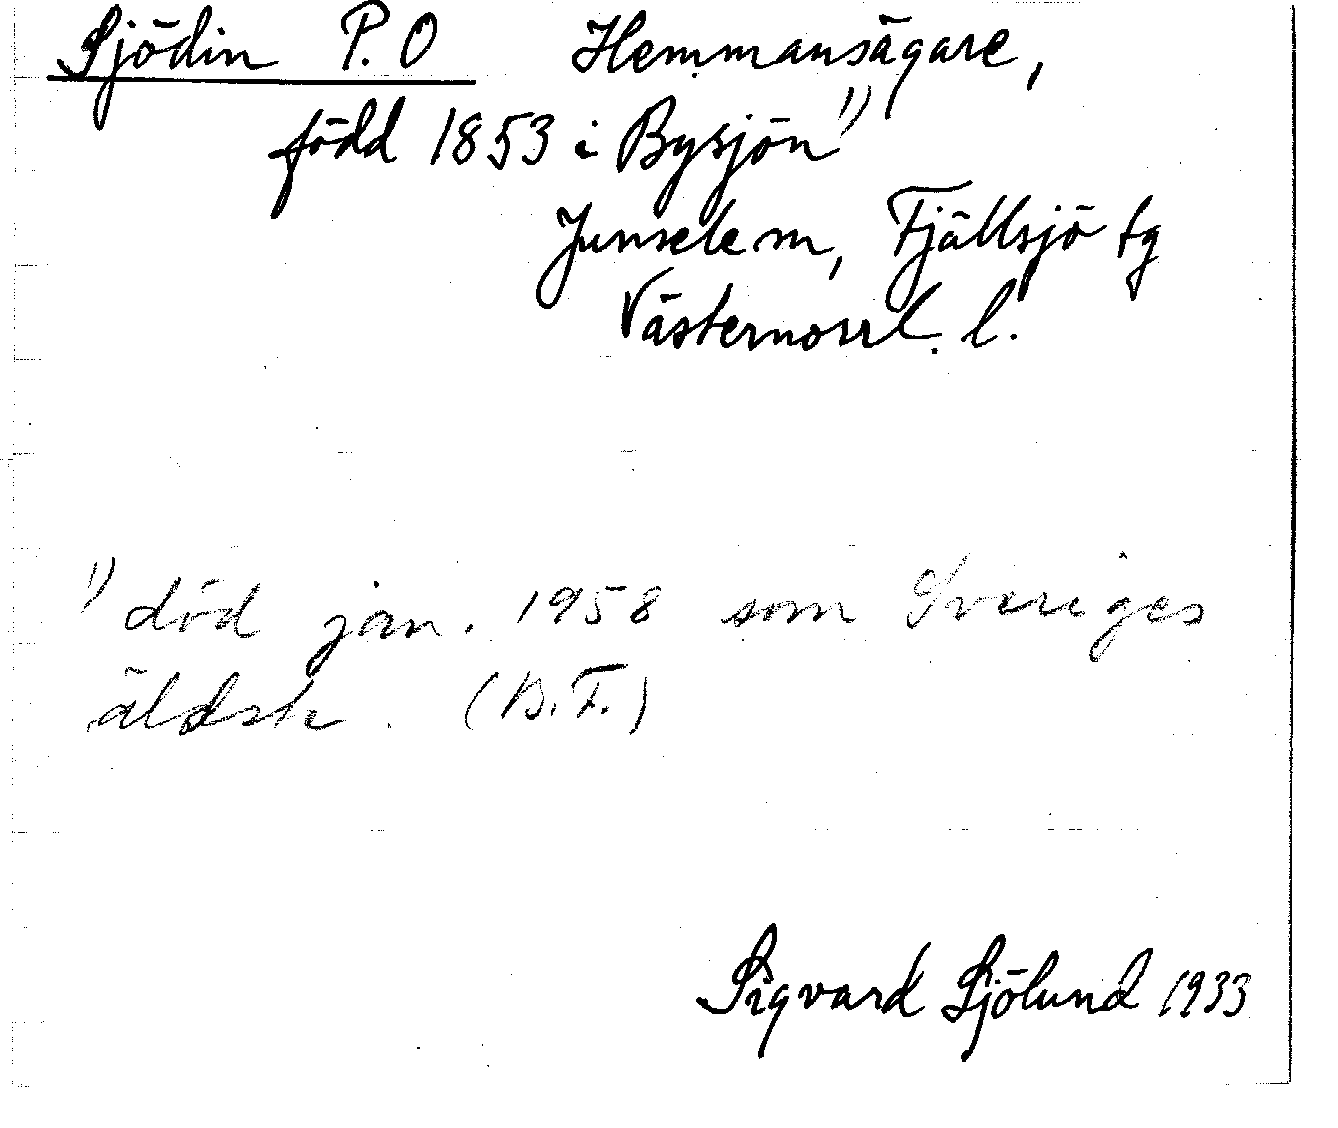 Sjödin P. O Hemmansägare,
född 1853 i Bysjön 1)
Junsele sn, Fjällsjö tg
Västernorrl. l.
1) död jan. 1958 som Sveriges
äldste. (B.F.)
Sigvard Sjölund 1933